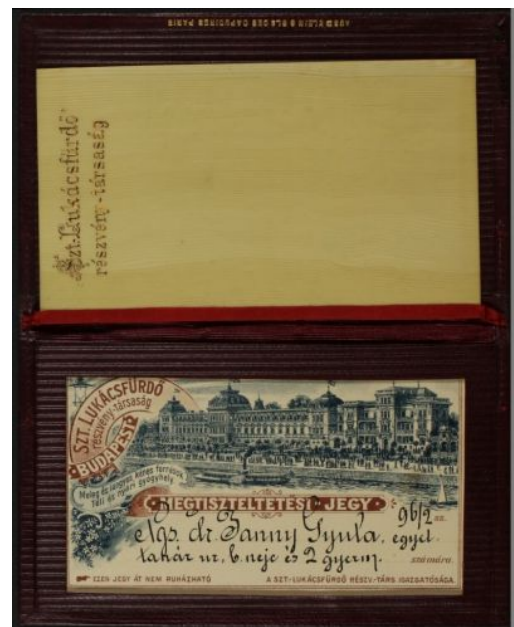 AUG. KLEIN 6 BLD DES CAPUCINES PARIS
Szt. Lukácsfürdő
részvény-társaság
SZT. LUKÁCSFÜRDŐ
részvény-társaság
BUDAPEST
Meleg és langyos kénes források
Téli és nyári gyógyhely
MEGTISZTELTETÉSI-JEGY
96/2 sz.
Ngs. dr. Fanny Gyula, egyet.
tanár ur, b. neje és 2 gyerm. számára.
EZEN JEGY ÁT NEM RUHÁZHATÓ
A SZT.-LUKÁCSFÜRDŐ RÉSZV.-TÁRS. IGAZGATÓSÁGA.